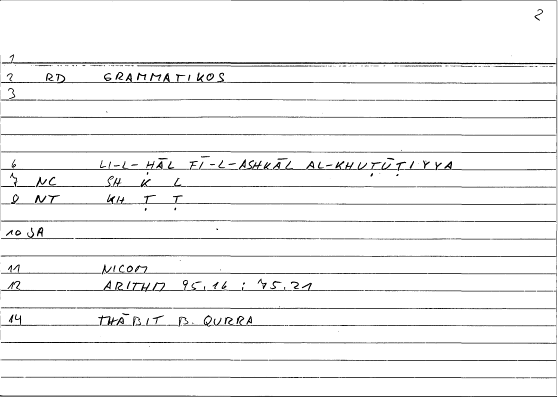 2
1
2 RD GRAMMATIKOS
3
6 LI-L-ḤĀL FĪ-L-ASHKĀL AL-KHUṬŪṬIYYA
7 NC SH K L
9 NT KH Ṭ Ṭ
10 JA
11 NICOM
12 ARITHM 95,16 : 75.21
14 THĀBIT B. QURRA